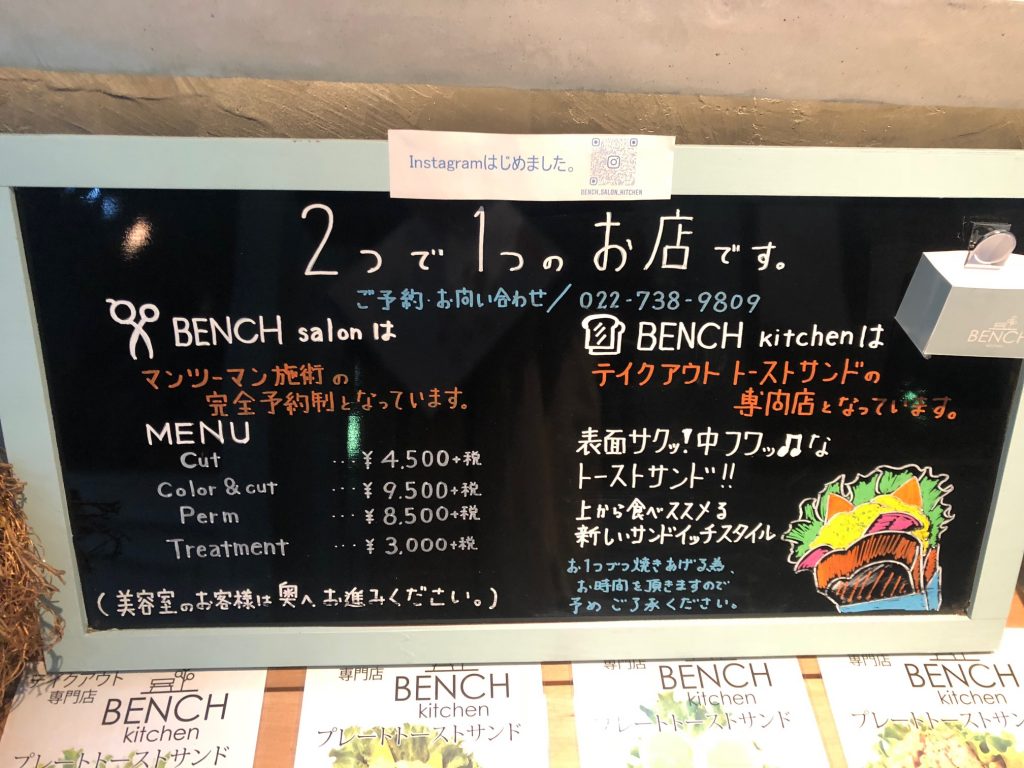 Instagramはじめました。
BENCH_SALON_KITCHEN
2つで1つのお店です。
ご予約・お問い合わせ/022-738-9809
BENCH salonは
マンツーマン施術の
完全予約制となっています。
MENU
Cut ・・・¥4.500+税
Color & cut ・・・¥9.500+税
Perm ・・・¥8.500+税
Treatment ・・・¥3.000+税
(美容室のお客様は奥へお進みください。)
BENCH kitchenは
テイクアウトトーストサンドの
専門店となっています。
表面サクッ!中フワッ♫な
トーストサンド!!
上から食べススメる
新しいサンドイッチスタイル
お1つづつ焼きあげる為、
お時間を頂きますので
予めご了承ください。
BENCH
テイクアウト
専門店
BENCH
kitchen
プレートトーストサンド
専門店
BENCH
kitchen
プレートトーストサンド
専門店
BENCH
kitchen
プレートトーストサンド
専門店
BENCH
kitchen
プレートトーストサンド